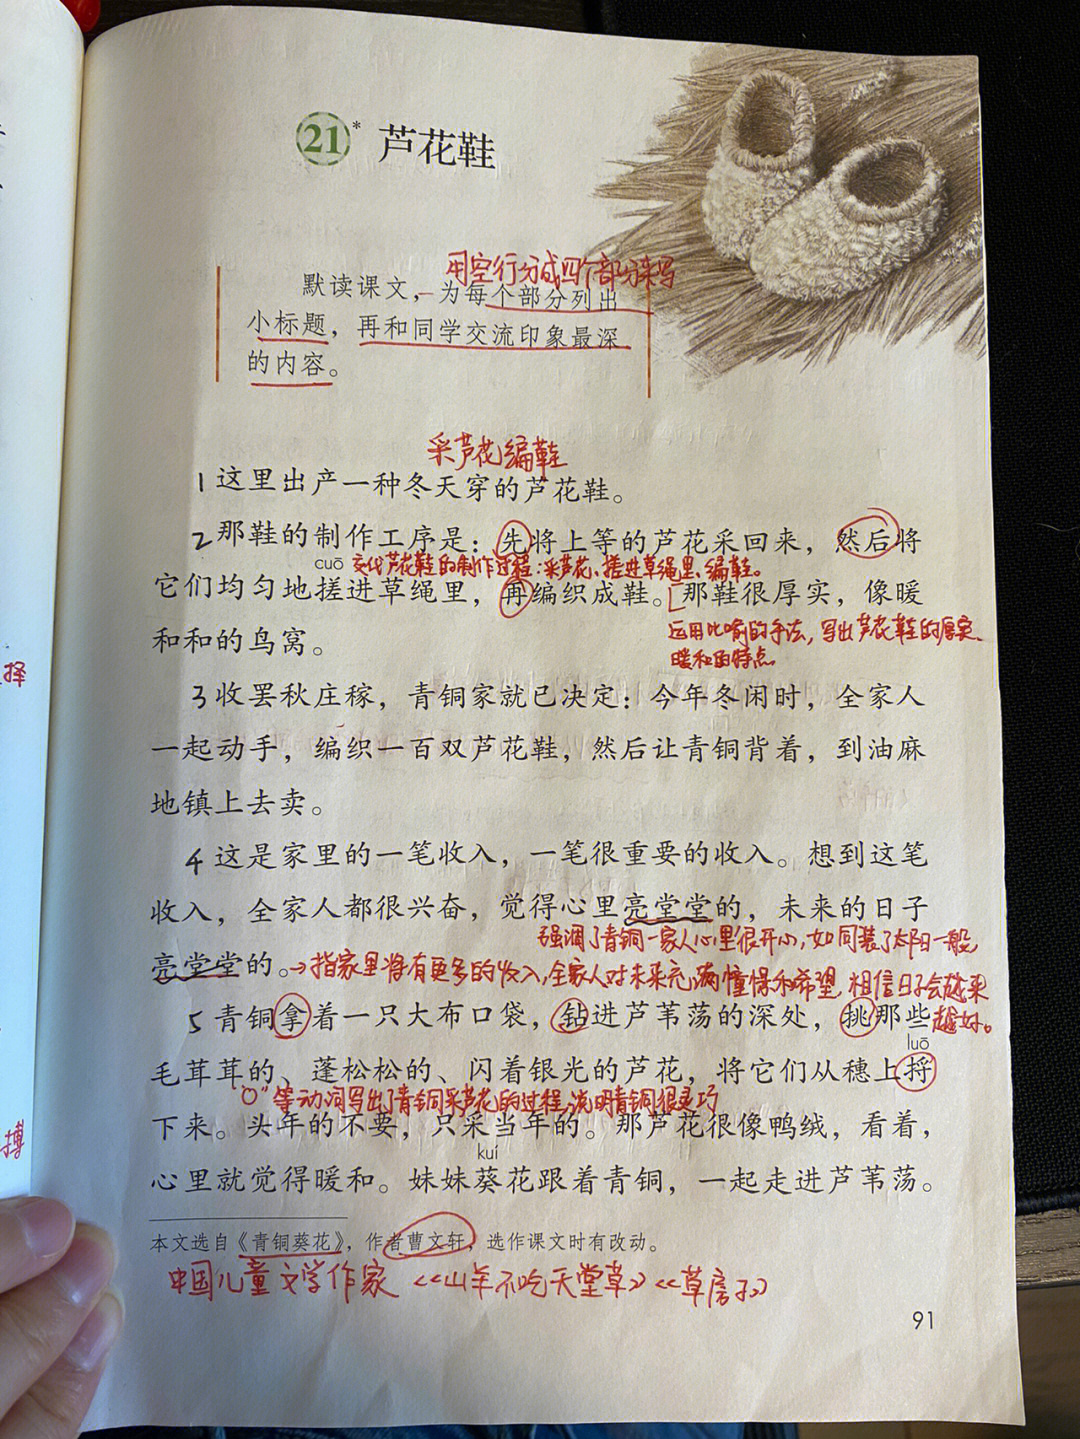 21* 芦花鞋
用空行分成四个部分来写
默读课文，为每个部分列出
小标题，再和同学交流印象最深
的内容。
采芦花编鞋
1 这里出产一种冬天穿的芦花鞋。
2 那鞋的制作工序是：先将上等的芦花采回来，然后将
cuō 交代芦花鞋的制作过程：采芦花、搓进草绳里、编鞋。
它们均匀地搓进草绳里，再编织成鞋。那鞋很厚实，像暖
运用比喻的手法，写出芦花鞋的厚实、
和和的鸟窝。
暖和的特点。
择
3 收罢秋庄稼，青铜家就已决定：今年冬闲时，全家人
一起动手，编织一百双芦花鞋，然后让青铜背着，到油麻
地镇上去卖。
4 这是家里的一笔收入，一笔很重要的收入。想到这笔
收入，全家人都很兴奋，觉得心里亮堂堂的，未来的日子
强调了青铜一家人心里很开心，如同装了太阳一般
亮堂堂的。→指家里将有更多的收入，全家人对未来充满憧憬和希望，相信日子会越来
5 青铜拿着一只大布口袋，钻进芦苇荡的深处，挑那些 越好。
luō
毛茸茸的、蓬松松的、闪着银光的芦花，将它们从穗上捋
"○"等动词写出了青铜采芦花的过程，说明青铜很灵巧
下来。头年的不要，只采当年的。那芦花很像鸭绒，看着，
搏
kuí
心里就觉得暖和。妹妹葵花跟着青铜，一起走进芦苇荡。
本文选自《青铜葵花》，作者曹文轩，选作课文时有改动。
中国儿童文学作家 《山羊不吃天堂草》《草房子》
91